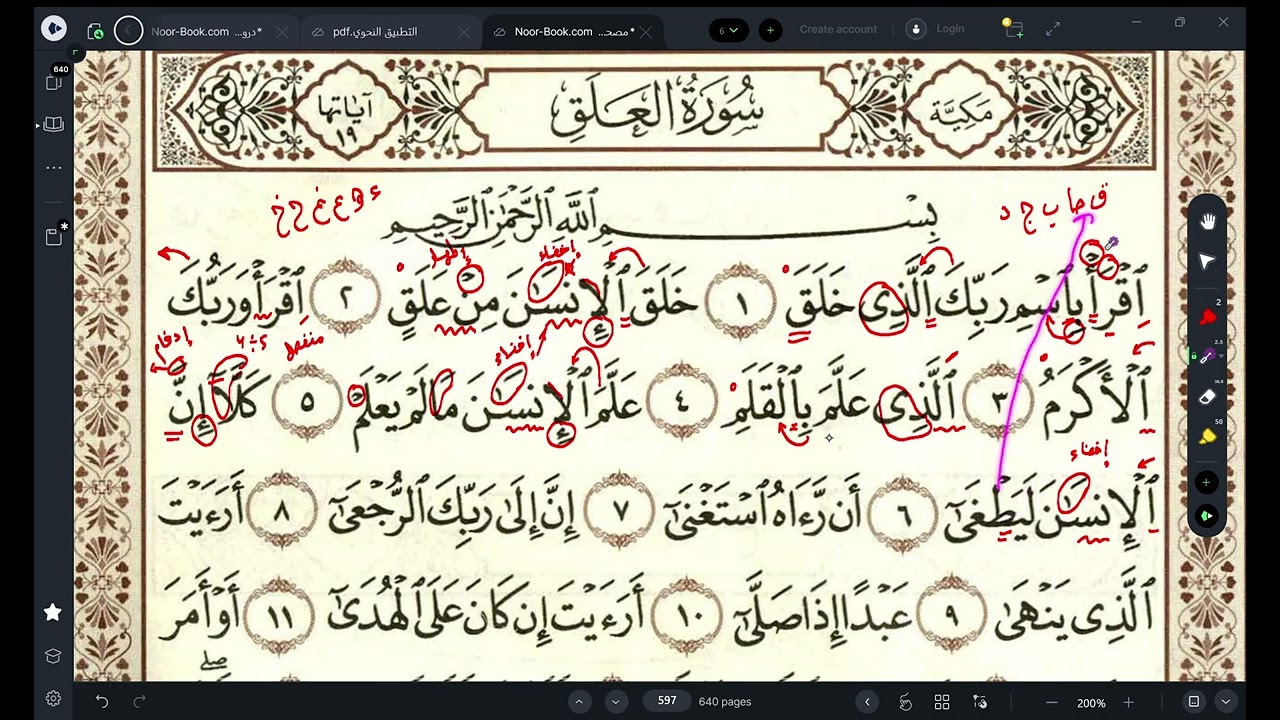 Noor-Book.com ...درو*
التطبيق النحوي.pdf
Noor-Book.com ...مصحـ*
6
Create account
Login
640
سُورَةُ العَلَقِ
مَكِيَّة
آياتها
١٩
ق طا ب ج د
ء ه ع غ ح خ
بِسْمِ ٱللَّهِ ٱلرَّحْمَٰنِ ٱلرَّحِيمِ
إخفاء
إظهار
ٱقْرَأْ بِٱسْمِ رَبِّكَ ٱلَّذِى خَلَقَ ١ خَلَقَ ٱلْإِنسَٰنَ مِنْ عَلَقٍ ٢ ٱقْرَأْ وَرَبُّكَ
إخفاء
منفصل
إدغام
ٱلْأَكْرَمُ ٣ ٱلَّذِى عَلَّمَ بِٱلْقَلَمِ ٤ عَلَّمَ ٱلْإِنسَٰنَ مَا لَمْ يَعْلَمْ ٥ كَلَّآ إِنَّ
إخفاء
ٱلْإِنسَٰنَ لَيَطْغَىٰٓ ٦ أَن رَّءَاهُ ٱسْتَغْنَىٰٓ ٧ إِنَّ إِلَىٰ رَبِّكَ ٱلرُّجْعَىٰٓ ٨ أَرَءَيْتَ
ٱلَّذِى يَنْهَىٰ ٩ عَبْدًا إِذَا صَلَّىٰٓ ١٠ أَرَءَيْتَ إِن كَانَ عَلَى ٱلْهُدَىٰٓ ١١ أَوْ أَمَرَ
صلے
2
2.5
36.8
50
597
640 pages
200%